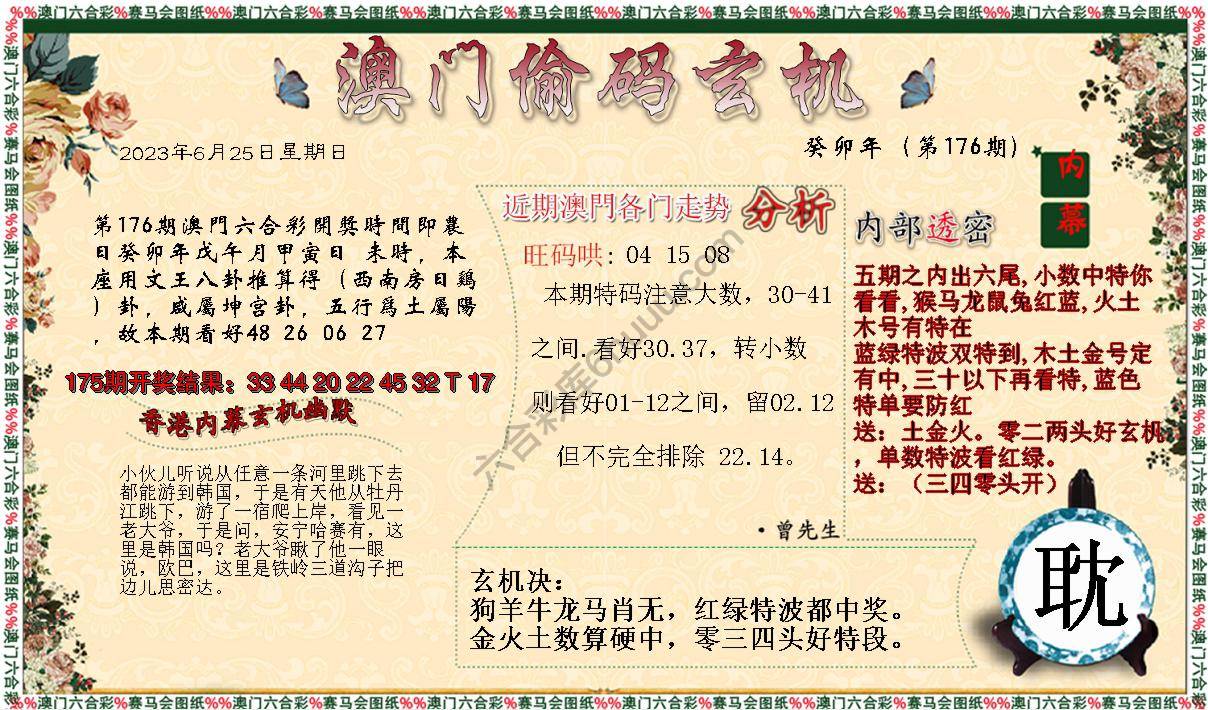 %%澳门六合彩%赛马会图纸%%澳门六合彩%赛马会图纸%%澳门六合彩%赛马会图纸%%澳门六合彩%赛马会图纸%%澳门六合彩%赛马会图纸%%澳门六合彩%赛马会图纸%%
澳门偷码玄机
2023年6月25日星期日
癸卯年（第176期）
第176期澳門六合彩開獎時間即農
日癸卯年戊午月甲寅日 未時，本
座用文王八卦推算得（西南房日鷄
）卦，威屬坤宫卦，五行爲土屬陽
，故本期看好48 26 06 27
175期开奖结果：33 44 20 22 45 32 T 17
香港内幕玄机幽默
小伙儿听说从任意一条河里跳下去
都能游到韩国，于是有天他从牡丹
江跳下，游了一宿爬上岸，看见一
老大爷，于是问，安宁哈赛有，这
里是韩国吗？老大爷瞅了他一眼
说，欧巴，这里是铁岭三道沟子把
边儿思密达。
近期澳門各门走势 分析
旺码哄：04 15 08
本期特码注意大数，30-41
之间.看好30.37，转小数
则看好01-12之间，留02.12
但不完全排除 22.14。
·曾先生
玄机决：
狗羊牛龙马肖无，红绿特波都中奖。
金火土数算硬中，零三四头好特段。
内部透密
内
幕
五期之内出六尾,小数中特你
看看,猴马龙鼠兔红蓝,火土
木号有特在
蓝绿特波双特到,木土金号定
有中,三十以下再看特,蓝色
特单要防红
送：土金火。零二两头好玄机
，单数特波看红绿。
送：（三四零头开）
耽
%%澳门六合彩%赛马会图纸%%澳门六合彩%赛马会图纸%%澳门六合彩%赛马会图纸%%澳门六合彩%赛马会图纸%%澳门六合彩%赛马会图纸%%澳门六合彩%赛马会图纸%%